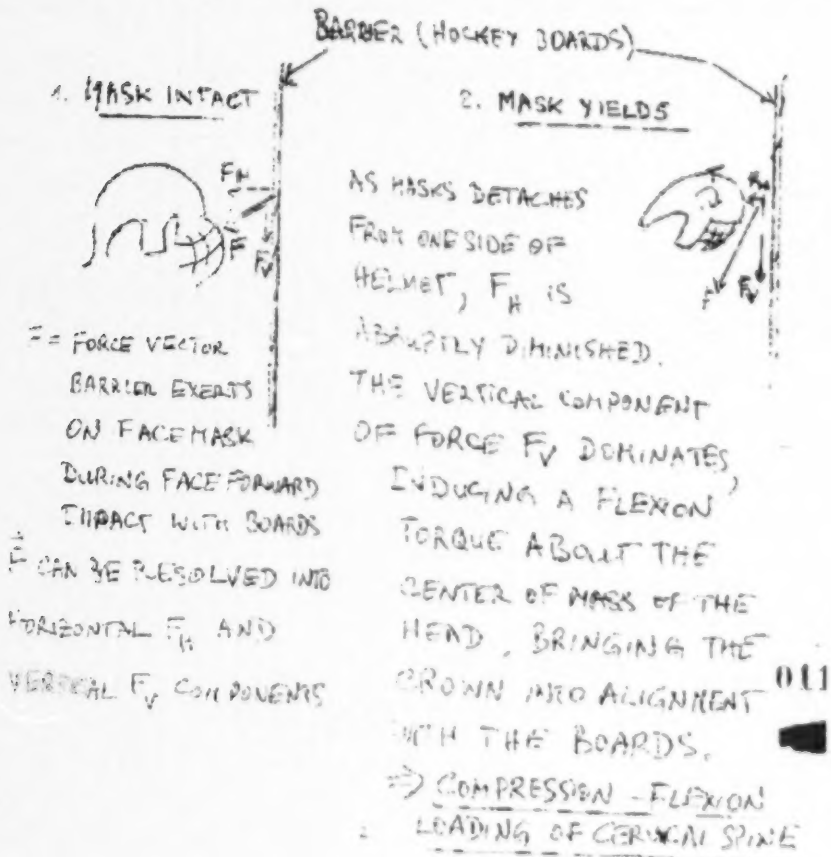 BARRIER (HOCKEY BOARDS)
1. MASK INTACT
F_H
F
F_V
F = FORCE VECTOR
BARRIER EXERTS
ON FACEMASK
DURING FACE FORWARD
IMPACT WITH BOARDS
F⃗ CAN BE RESOLVED INTO
HORIZONTAL F_H AND
VERTICAL F_V COMPONENTS
2. MASK YIELDS
AS MASKS DETACHES
FROM ONE SIDE OF
HELMET, F_H IS
ABRUPTLY DIMINISHED.
THE VERTICAL COMPONENT
OF FORCE F_V DOMINATES,
INDUCING A FLEXION
TORQUE ABOUT THE
CENTER OF MASS OF THE
HEAD, BRINGING THE
CROWN INTO ALIGNMENT
WITH THE BOARDS.
⇒ COMPRESSION-FLEXION
LOADING OF CERVICAL SPINE
F_H
F
F_V
011